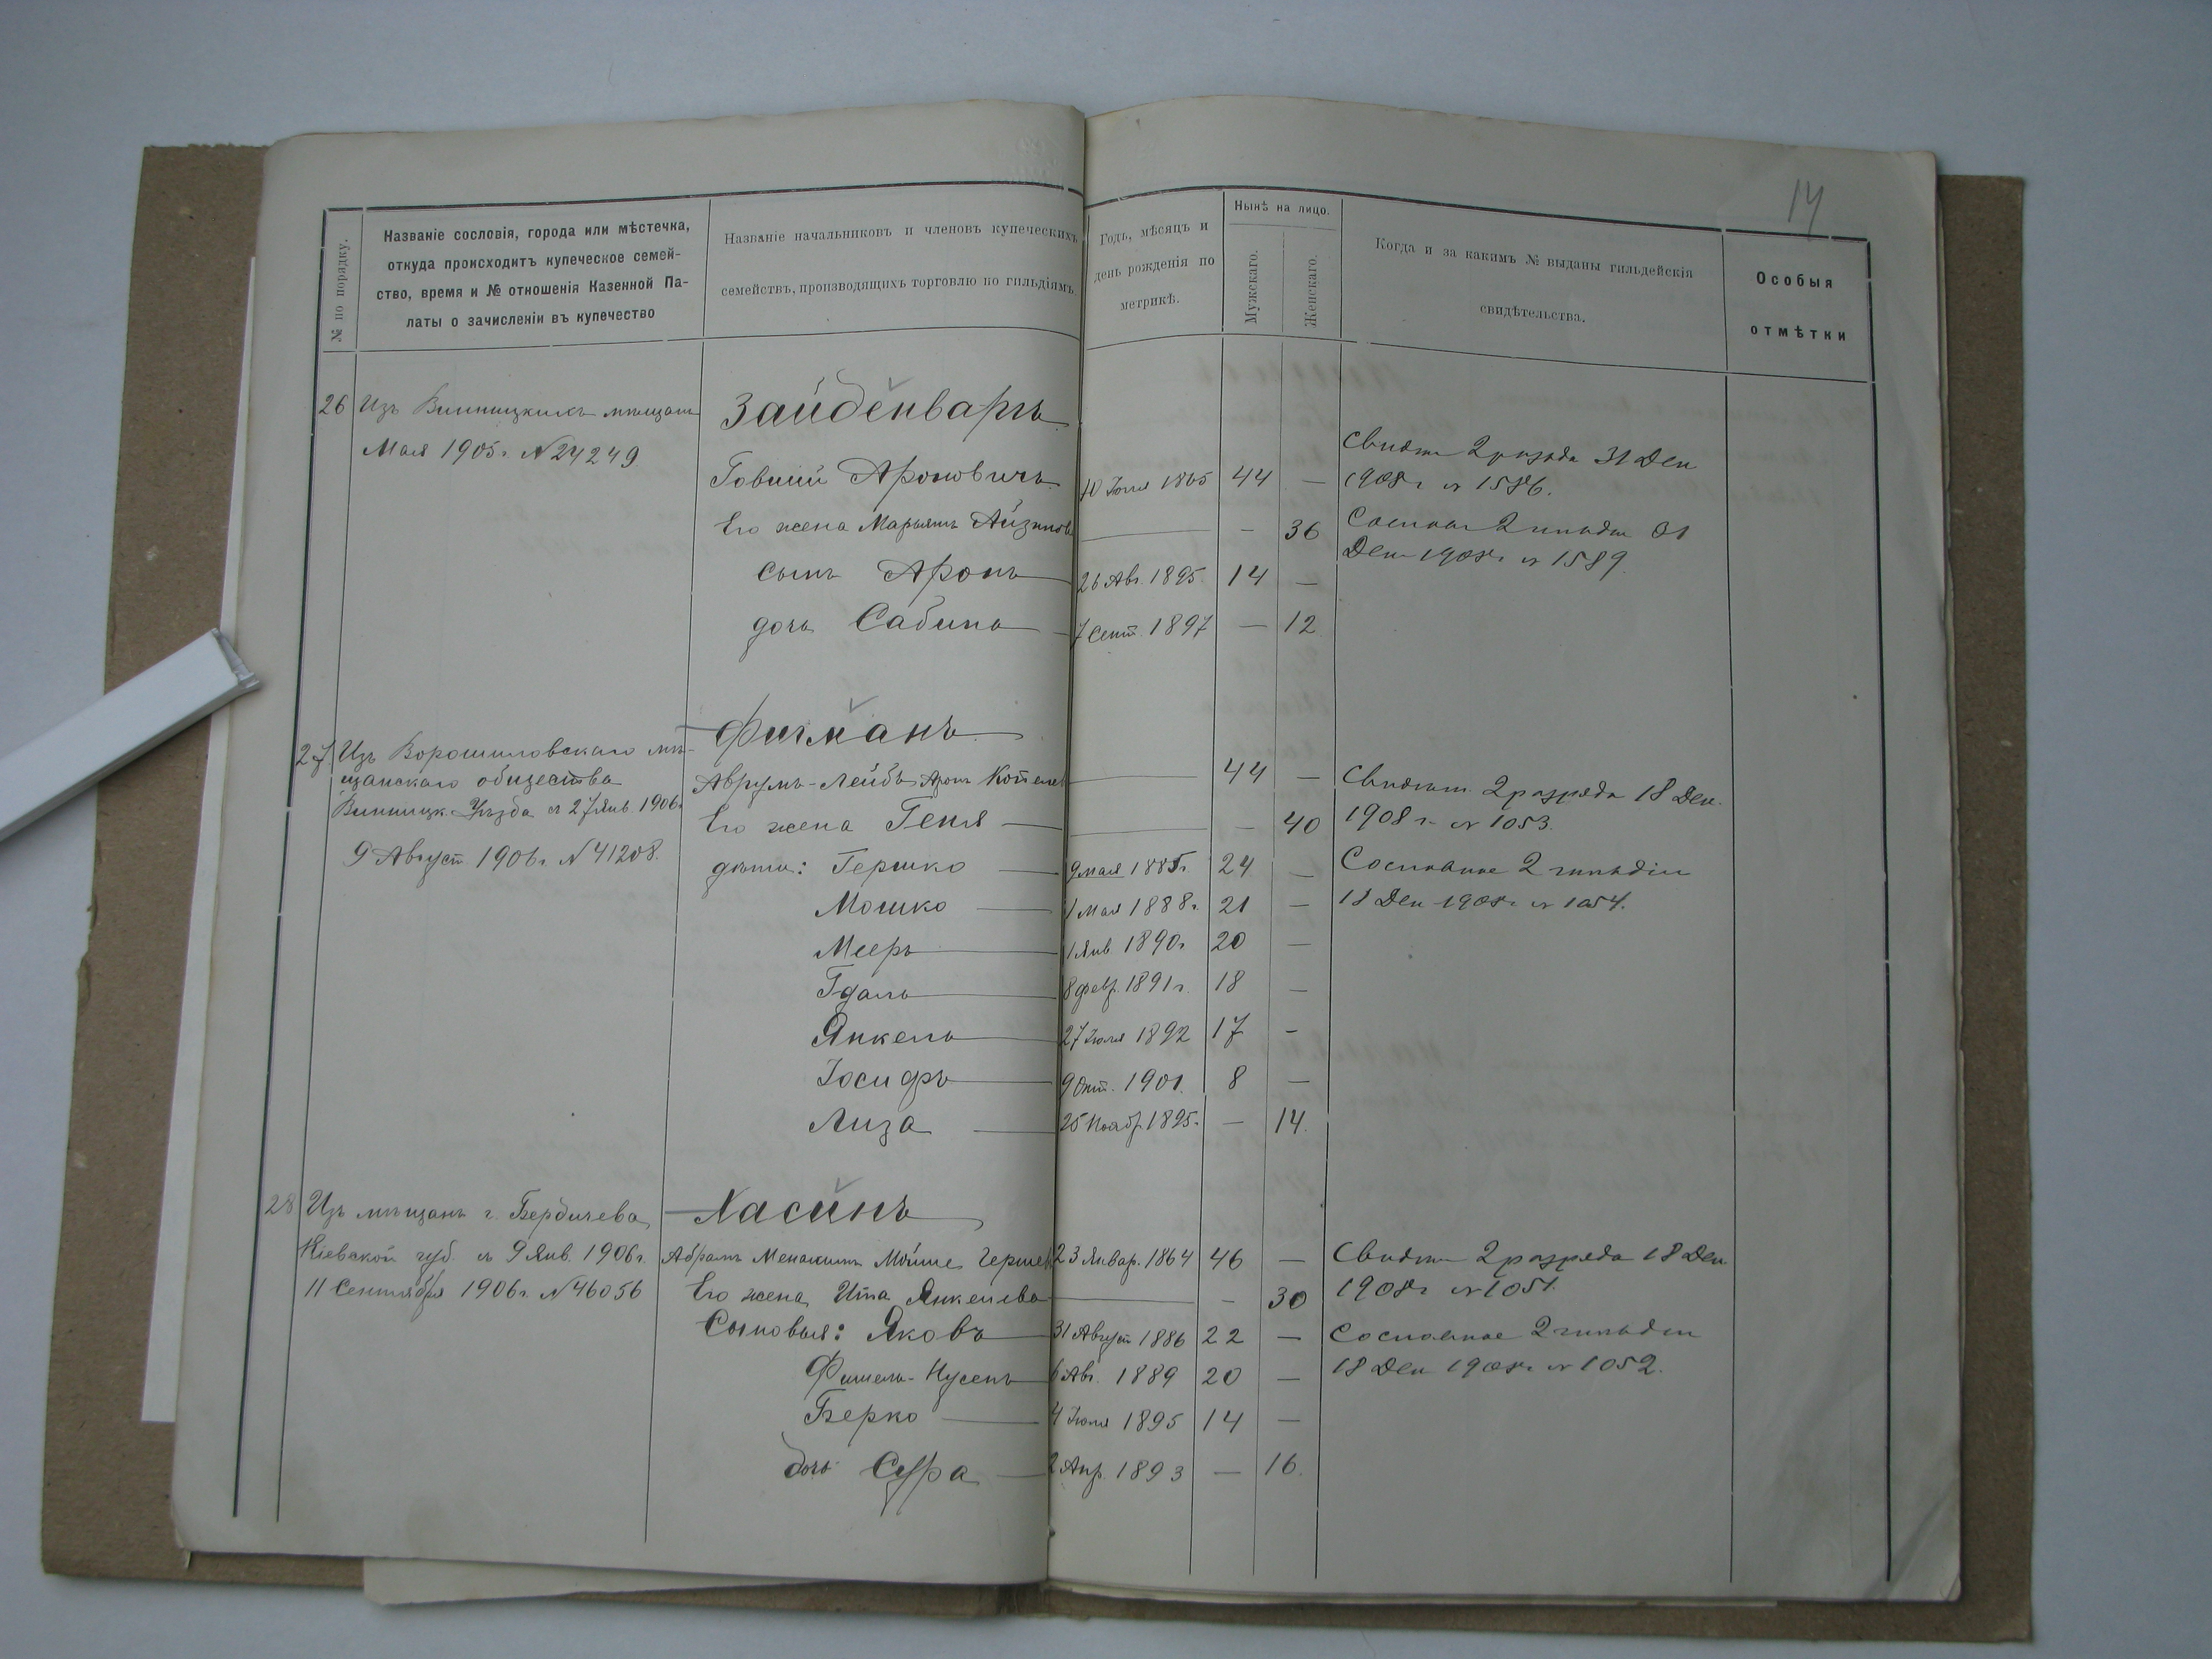 14
№ по порядку.
Названіе сословія, города или мѣстечка,
откуда происходитъ купеческое семей-
ство, время и № отношенія Казенной Па-
латы о зачисленіи въ купечество
Названіе начальниковъ и членовъ купеческихъ
семействъ, производящихъ торговлю по гильдіямъ.
Годъ, мѣсяцъ и
день рожденія по
метрикѣ.
Нынѣ на лицо.
Мужскаго.
Женскаго.
Когда и за какимъ № выданы гильдейскія
свидѣтельства.
Особыя
отмѣтки
26 Изъ Винницкихъ мѣщанъ
Мая 1905 г. № 24249
Зайденваргъ
Говший Ароновичъ 10 Іюля 1865 44 —
Его жена Марьямъ Айзиков — 36
сынъ Аронъ 26 Авг. 1895 14 —
дочь Сабина 7 Сент. 1897 — 12
Свидет 2 разряда 31 Дек
1908 г № 1586.
Сословн 2 гильди 31
Дек 1908 г № 1589.
27 Изъ Ворошиловскаго мѣ-
щанскаго общества
Винницк. Уѣзда съ 27 Янв. 1906 г
9 Август. 1906 г. № 41208.
Фигманъ
Аврумъ-Лейбъ Арон Копелев 44 —
Его жена Геня — 40
дѣти: Гершко 9 мая 1885 г. 24 —
Мошко 1 Мая 1888 г. 21 —
Мееръ 1 Янв 1890 г 20 —
Гдаль 8 февр. 1891 г. 18 —
Янкель 27 Іюля 1892 17 —
Іосифъ 9 Окт. 1901. 8 —
Лиза 25 Ноябр. 1895. — 14.
Свидет. 2 разряда 18 Дек.
1908 г. № 1053.
Сословное 2 гильдіи
18 Дек 1908 г № 1054.
28 Изъ мѣщанъ г. Бердичева
Кіевской губ. съ 9 Янв. 1906 г.
11 Сентября 1906 г. № 46056
Хасинъ
Абрамъ Менахимъ Мойше Гершев 23 Январ. 1864 46 —
Его жена Ита Янкелева — 30
Сыновья: Яковъ 31 Август 1886 22 —
Фишель-Нусенъ 6 Авг. 1889 20 —
Берко 4 Іюля 1895 14 —
дочь Сура 2 Апр. 1893 — 16.
Свидет 2 разряда 18 Дек
1908 г № 1051.
Сословное 2 гильдіи
18 Дек 1908 г № 1052.